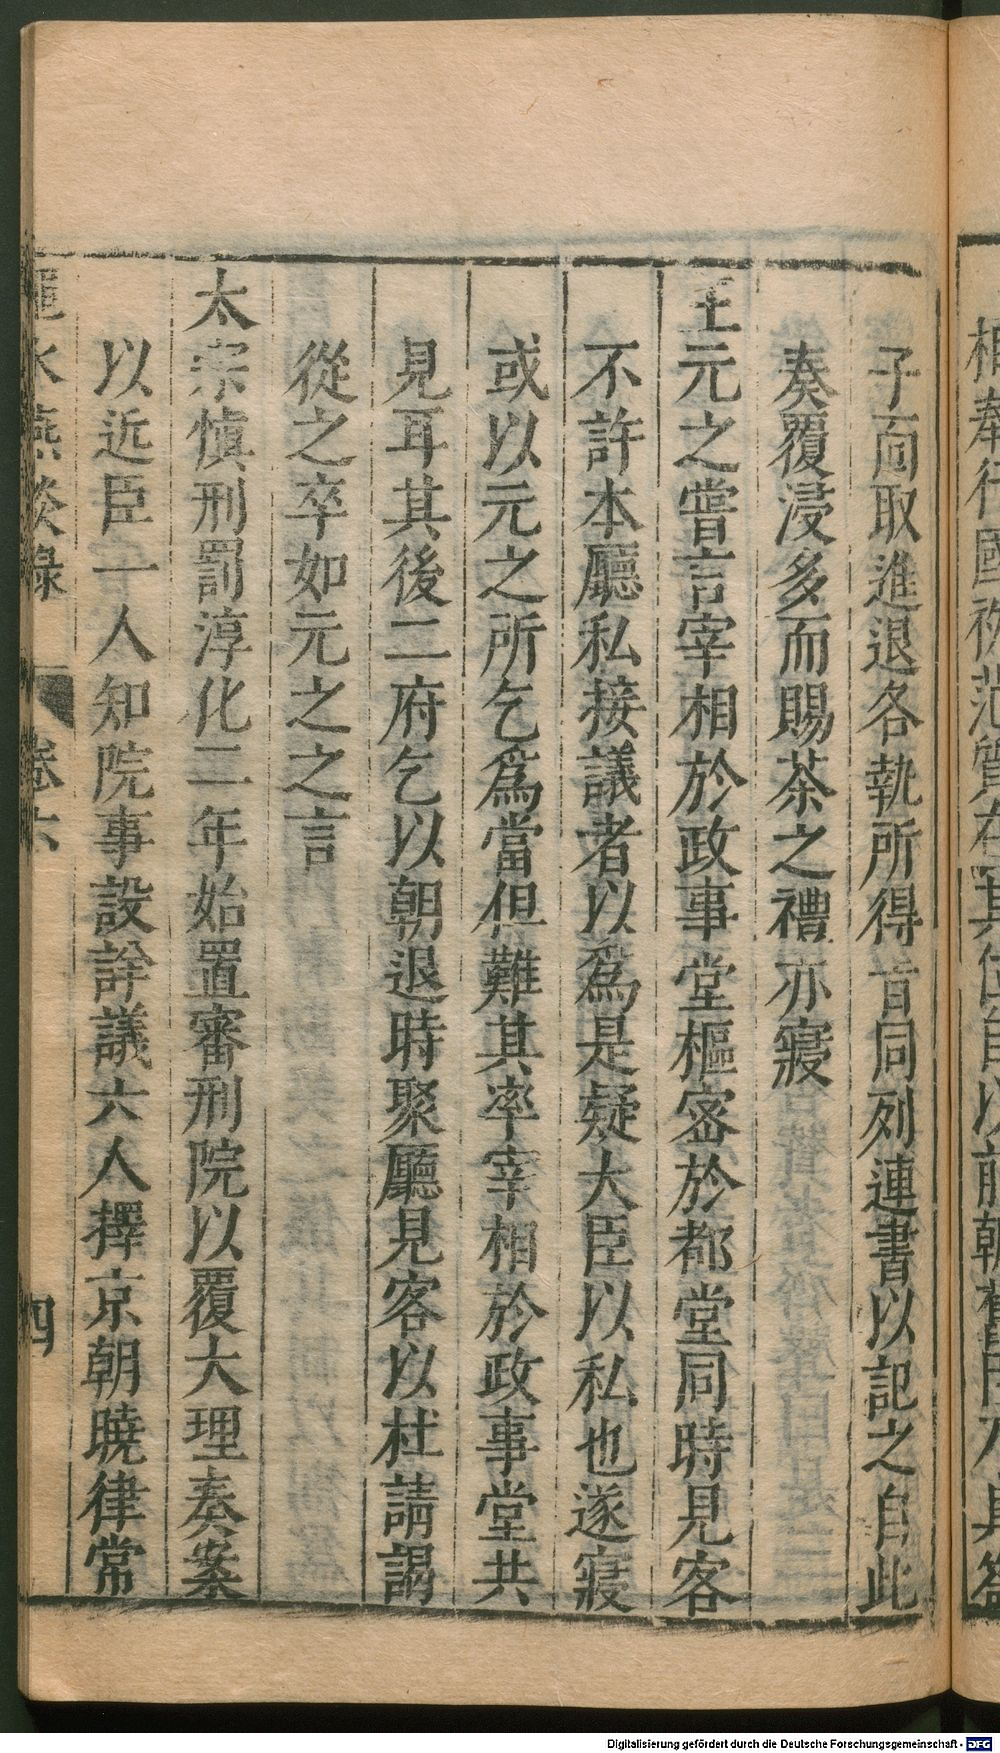 子面取進退各執所得旨同列連書以記之自此
奏覆浸多而賜茶之禮亦寢
王元之嘗言宰相於政事堂樞密於都堂同時見客
不許本廳私接議者以爲是疑大臣以私也遂寢
或以元之所乞爲當但難其率宰相於政事堂共
見耳其後二府乞以朝退時聚廳見客以杜請謁
從之卒如元之之言
太宗慎刑罰淳化二年始置審刑院以覆大理奏案
以近臣一人知院事設詳議六人擇京朝曉律常
澠水燕談錄 卷六 四
Digitalisierung gefördert durch die Deutsche Forschungsgemeinschaft - DFG